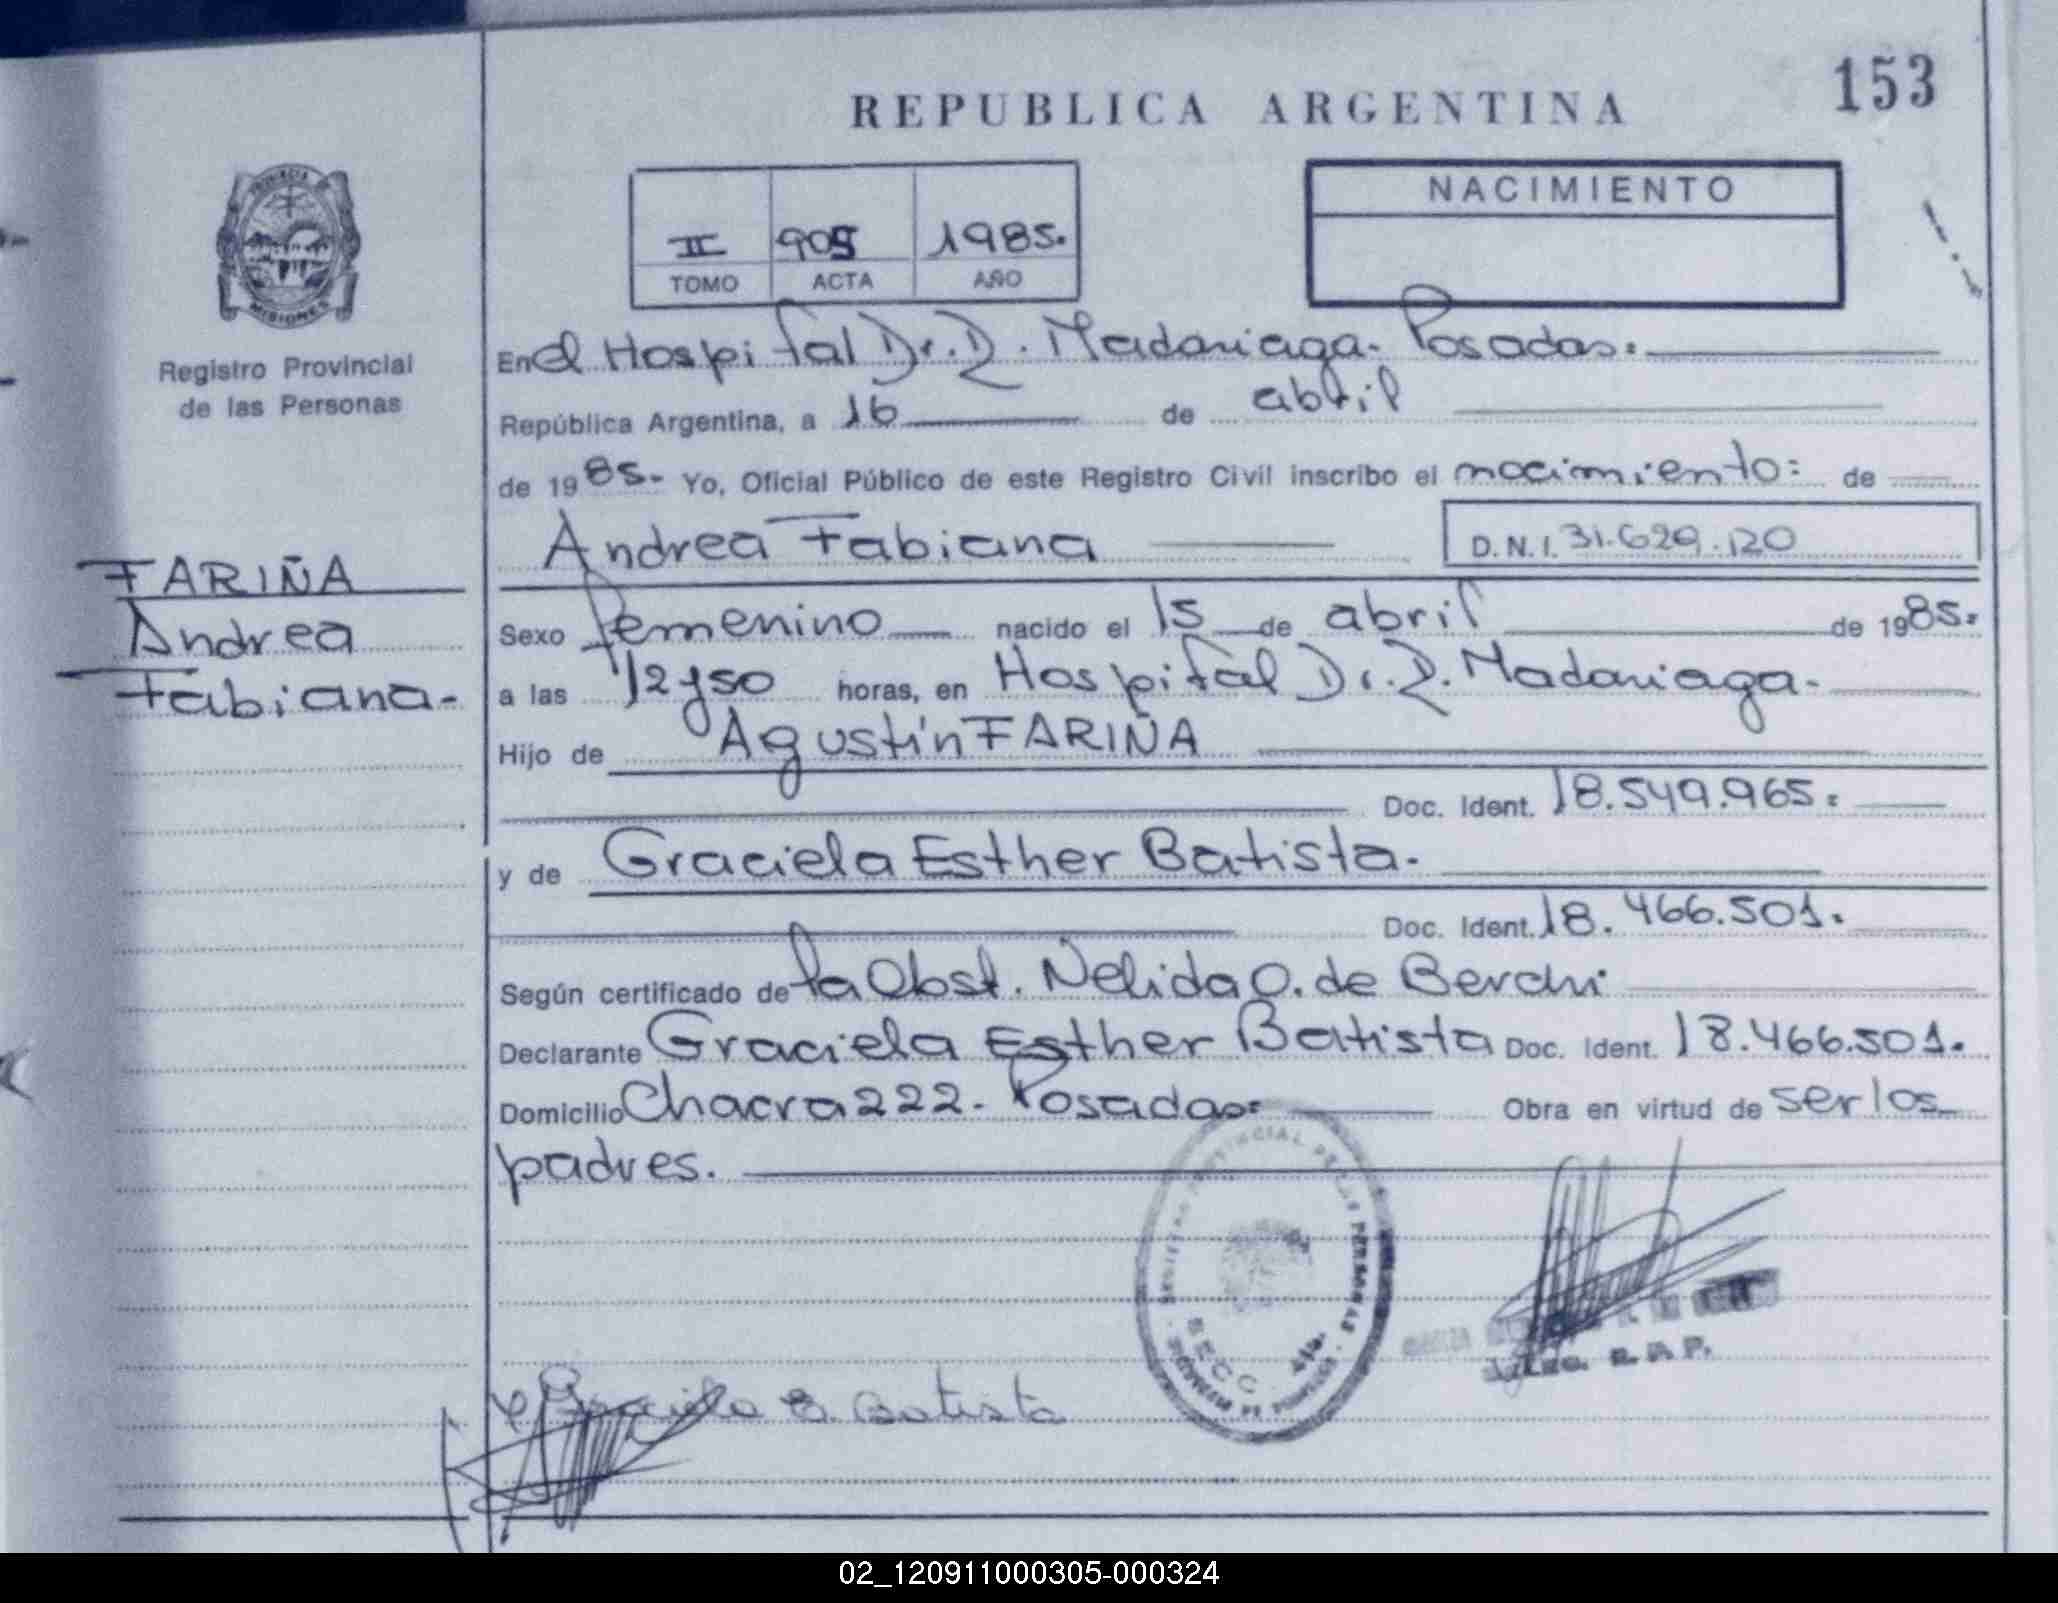 REPUBLICA ARGENTINA
153
PROVINCIA DE
MISIONES
Registro Provincial
de las Personas
II 905 1985.
TOMO ACTA AÑO
NACIMIENTO
En el Hospital Dr. R. Madariaga. Posadas.
República Argentina, a 16 de abril
de 1985.- Yo, Oficial Público de este Registro Civil inscribo el nacimiento: de
Andrea Fabiana
D.N.I. 31.629.120
FARIÑA
Andrea
Fabiana.-
Sexo femenino nacido el 15 de abril de 1985.
a las 12y50 horas, en Hospital Dr. R. Madariaga.
Hijo de Agustín FARIÑA
Doc. Ident. 18.549.965.
y de Graciela Esther Batista.
Doc. Ident. 18.466.501.
Según certificado de la Obst. Nelida O. de Berchi
Declarante Graciela Esther Batista Doc. Ident. 18.466.501.
Domicilio Chacra 222.- Posadas. Obra en virtud de ser los
padres.
REGISTRO PROVINCIAL DE LAS PERSONAS
SECC.
PROVINCIA DE MISIONES
R. A P.
Graciela E. Batista
02_120911000305-000324